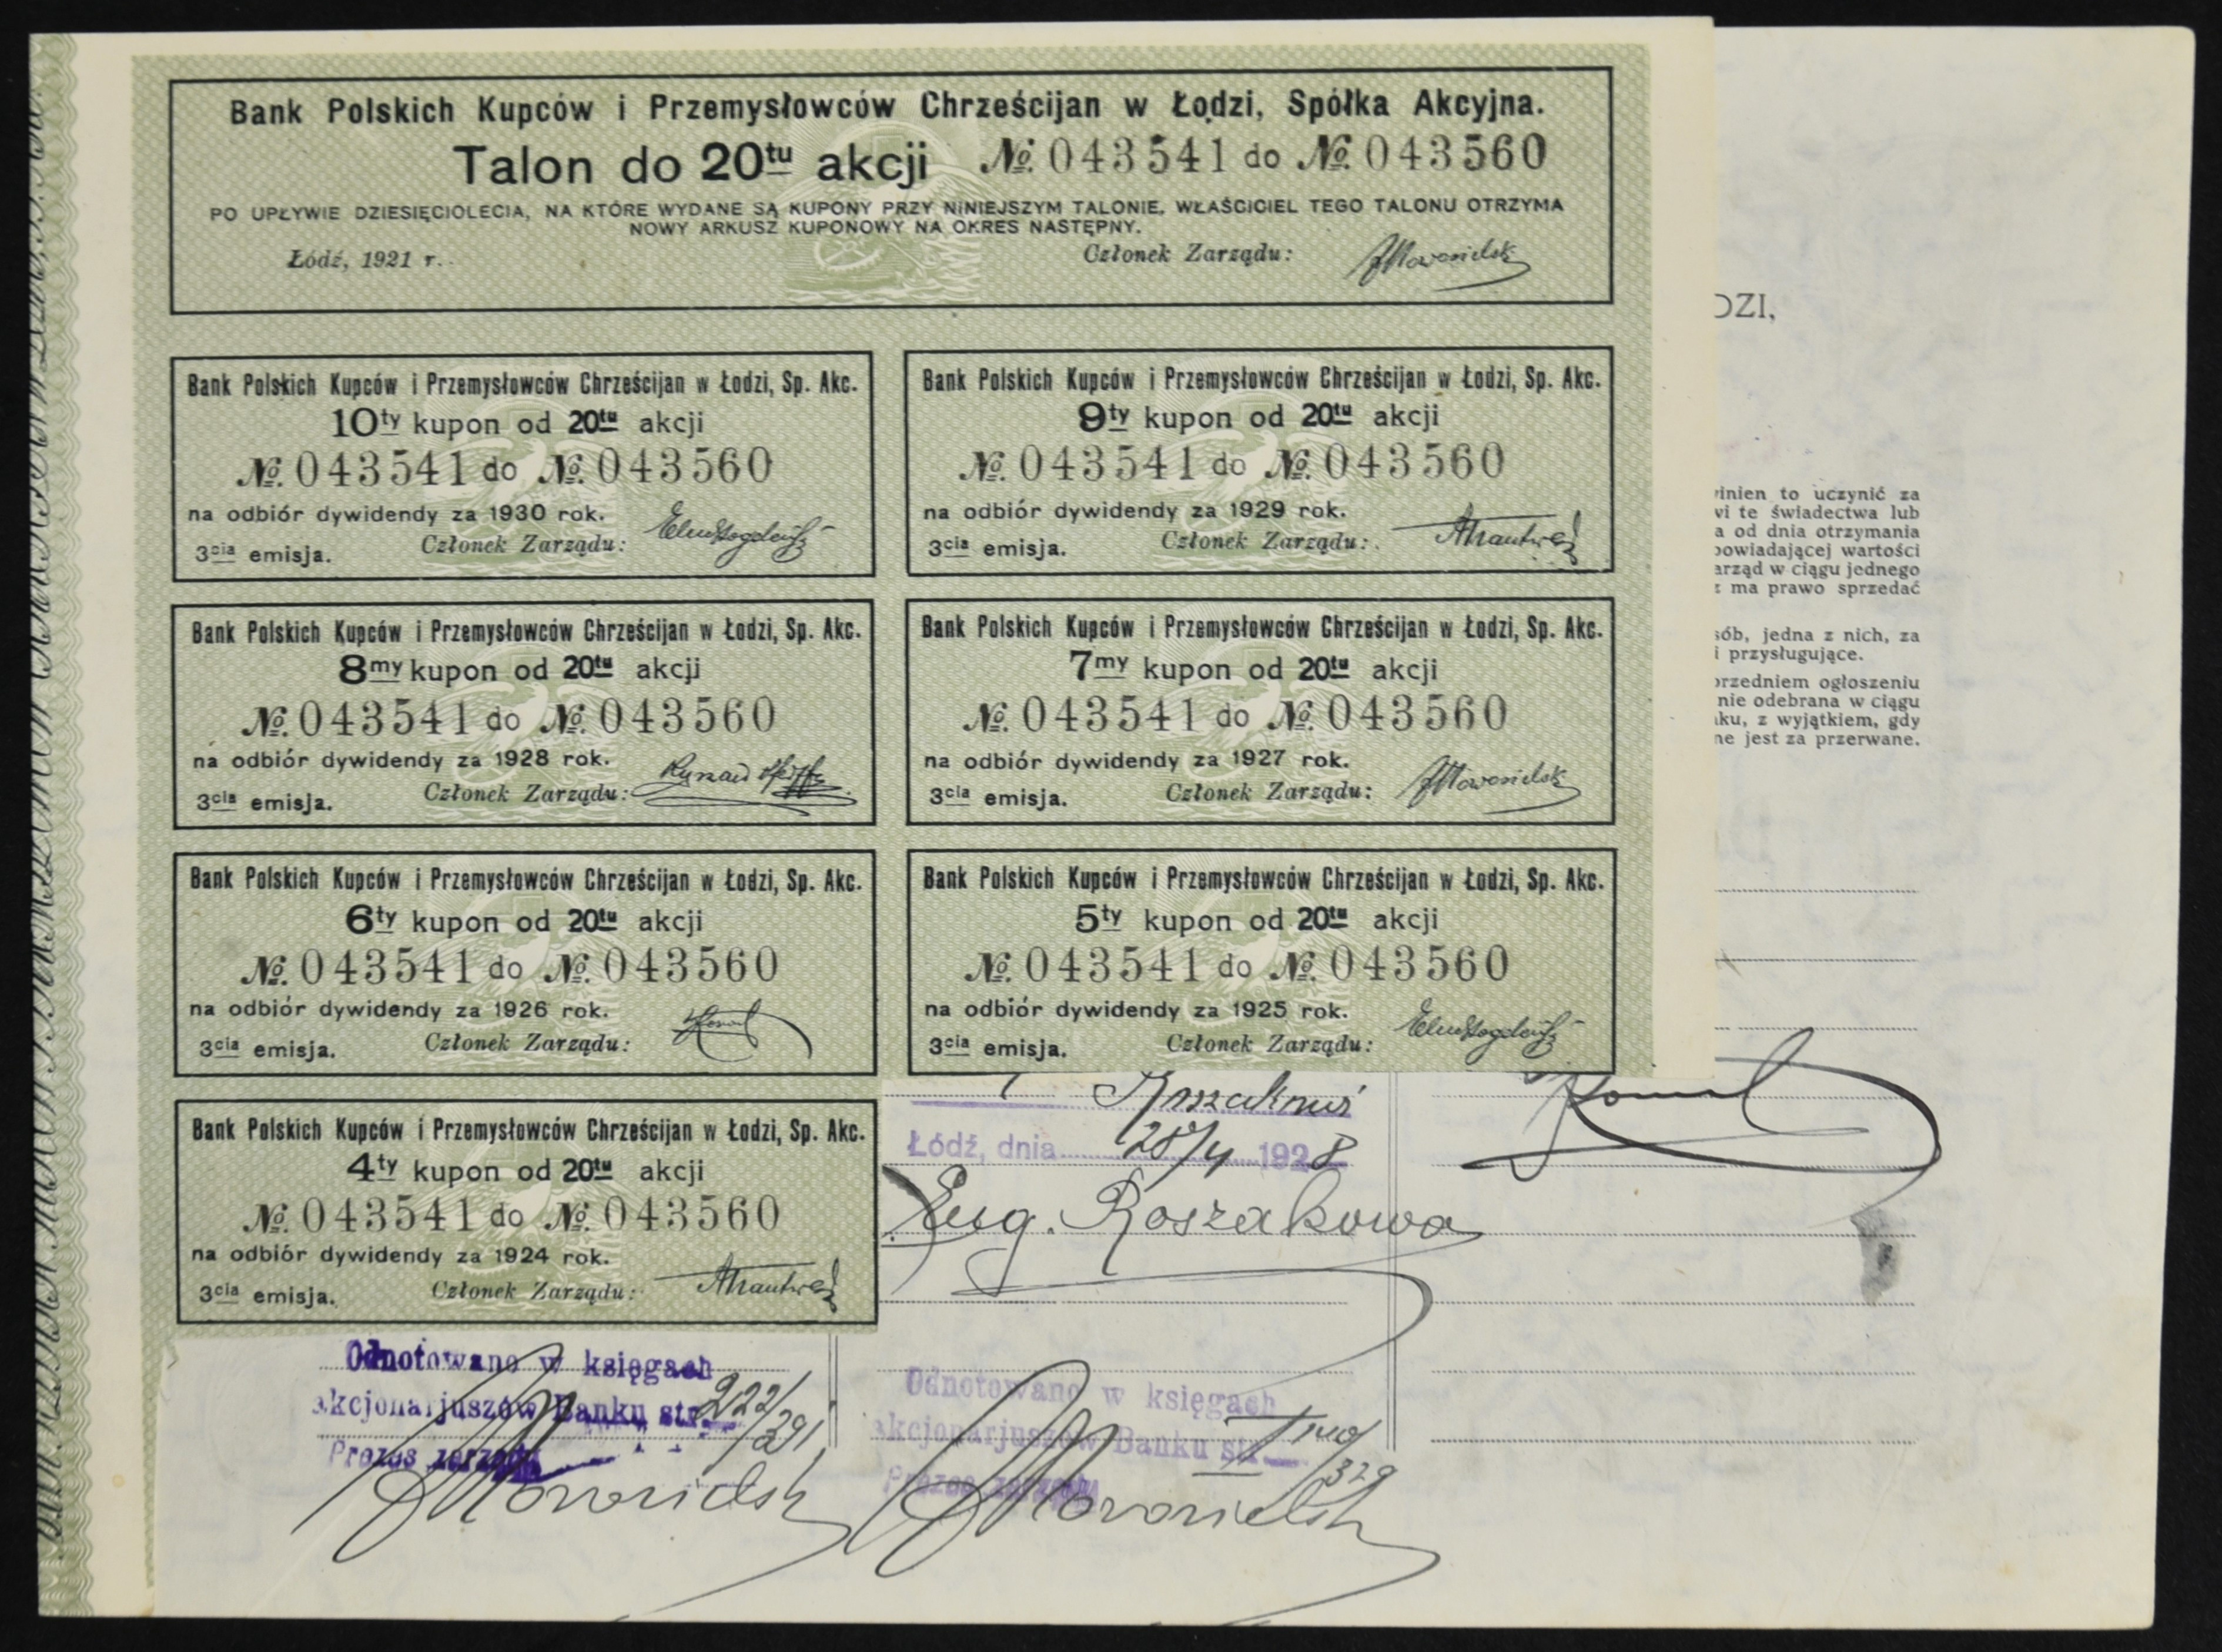 Bank Polskich Kupców i Przemysłowców Chrześcijan w Łodzi, Spółka Akcyjna.
Talon do 20tu akcji № 043541 do № 043560
PO UPŁYWIE DZIESIĘCIOLECIA, NA KTÓRE WYDANE SĄ KUPONY PRZY NINIEJSZYM TALONIE, WŁAŚCICIEL TEGO TALONU OTRZYMA
NOWY ARKUSZ KUPONOWY NA OKRES NASTĘPNY.
Łódź, 1921 r. Członek Zarządu:
Bank Polskich Kupców i Przemysłowców Chrześcijan w Łodzi, Sp. Akc.
10ty kupon od 20tu akcji
№ 043541 do № 043560
na odbiór dywidendy za 1930 rok.
3cia emisja. Członek Zarządu:
Bank Polskich Kupców i Przemysłowców Chrześcijan w Łodzi, Sp. Akc.
9ty kupon od 20tu akcji
№ 043541 do № 043560
na odbiór dywidendy za 1929 rok.
3cia emisja. Członek Zarządu:
Bank Polskich Kupców i Przemysłowców Chrześcijan w Łodzi, Sp. Akc.
8my kupon od 20tu akcji
№ 043541 do № 043560
na odbiór dywidendy za 1928 rok.
3cia emisja. Członek Zarządu:
Bank Polskich Kupców i Przemysłowców Chrześcijan w Łodzi, Sp. Akc.
7my kupon od 20tu akcji
№ 043541 do № 043560
na odbiór dywidendy za 1927 rok.
3cia emisja. Członek Zarządu:
Bank Polskich Kupców i Przemysłowców Chrześcijan w Łodzi, Sp. Akc.
6ty kupon od 20tu akcji
№ 043541 do № 043560
na odbiór dywidendy za 1926 rok.
3cia emisja. Członek Zarządu:
Bank Polskich Kupców i Przemysłowców Chrześcijan w Łodzi, Sp. Akc.
5ty kupon od 20tu akcji
№ 043541 do № 043560
na odbiór dywidendy za 1925 rok.
3cia emisja. Członek Zarządu:
Bank Polskich Kupców i Przemysłowców Chrześcijan w Łodzi, Sp. Akc.
4ty kupon od 20tu akcji
№ 043541 do № 043560
na odbiór dywidendy za 1924 rok.
3cia emisja. Członek Zarządu:
DZI,
winien to uczynić za
wi te świadectwa lub
a od dnia otrzymania
powiadającej wartości
arząd w ciągu jednego
z ma prawo sprzedać
sób, jedna z nich, za
i przysługujące.
przedniem ogłoszeniu
nie odebrana w ciągu
ku, z wyjątkiem, gdy
ne jest za przerwane.
Łódź, dnia 28/4 1928
Eug. Roszakowa
Odnotowano w księgach
akcjonarjuszów Banku str. 222/391
Prezes zarządu
Odnotowano w księgach
akcjonarjuszów Banku str.
Prezes zarządu